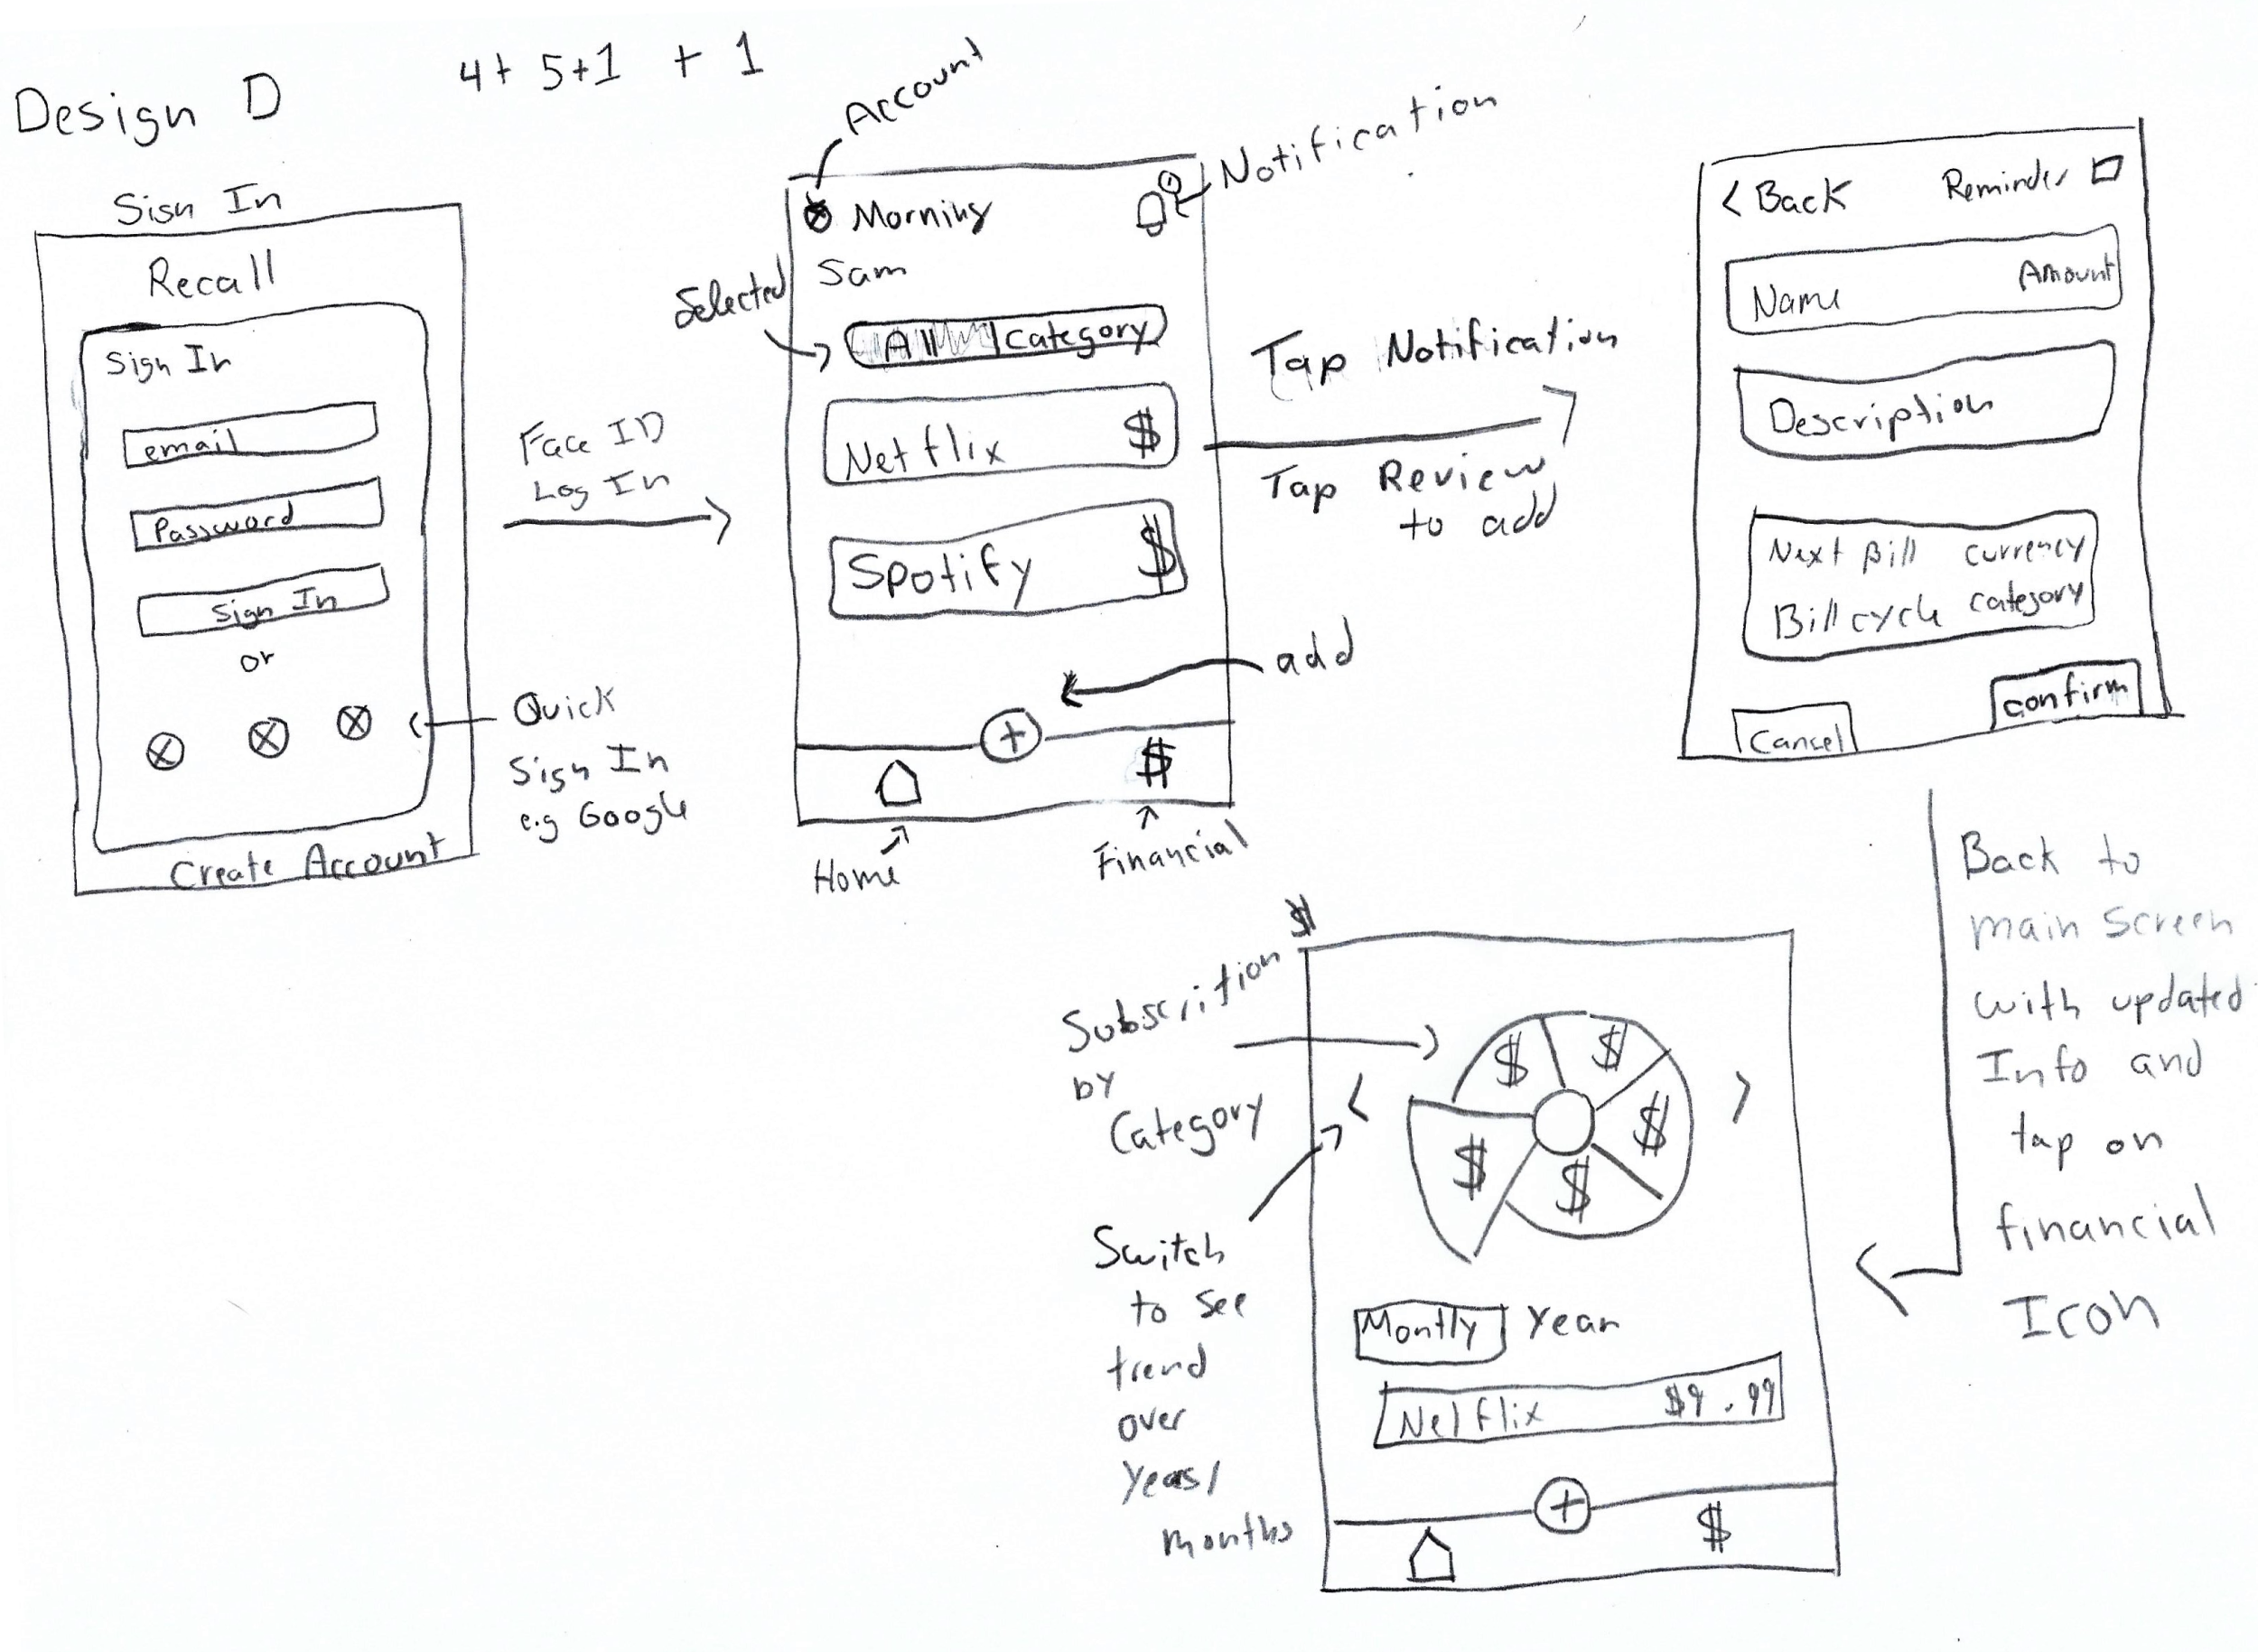 Design D
4+ 5+1 + 1
Sign In
Recall
Sign In
email
Password
Sign In
or
Create Account
Quick
Sign In
e.g Google
Face ID
Log In
Account
Notification
Morning
Sam
Selected
All category
Netflix $
Spotify $
add
+
$
Home
Financial
Tap Notification
Tap Review
to add
< Back Reminder
Name Amount
Description
Next Bill currency
Bill cycle category
Cancel confirm
Back to
main screen
with updated
Info and
tap on
financial
Icon
$
Subscrition
by
Category
< >
$ $
$ $
$
Switch
to see
trend
over
Years/
months
Montly Year
Netflix $9.99
+
$